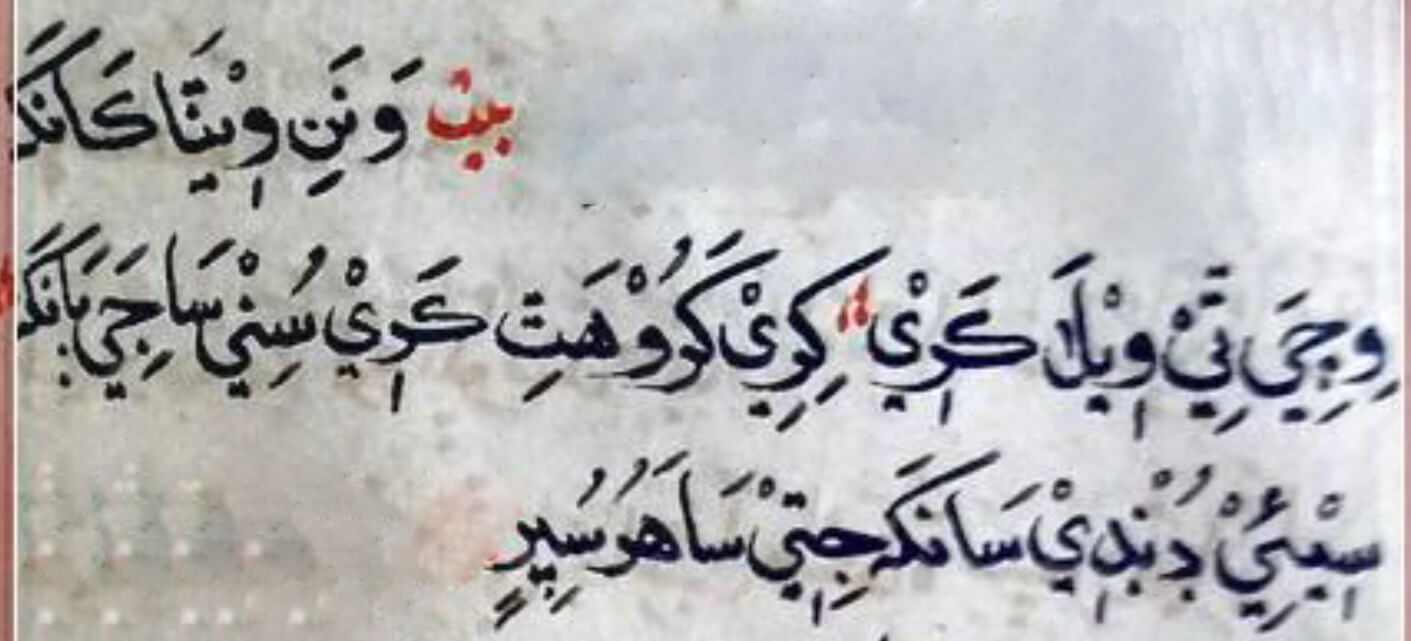 بيت وَنَنِ وٖيْتَا كَانَكَ
وِجِي تِيْ وٖيْلَا كَرٖيْ كِرِيْ كَرُوْ هَتِ كَرٖيْ سُنِيْ سَاجِيْ بَانكَ
سٖيْئِيْ ڍُنْڍٖيْ سَانكَه جِتٖيْ سَاهَرُ سُپِرٍ